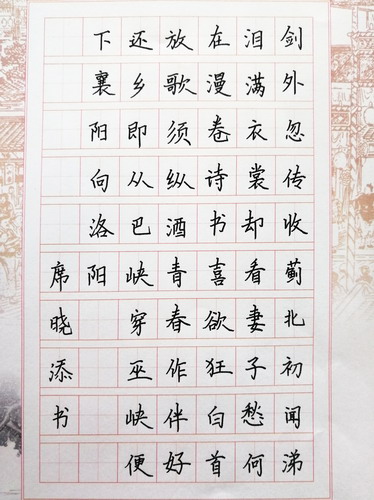 剑外忽传收蓟北初闻涕
泪满衣裳却看妻子愁何
在漫卷诗书喜欲狂白首
放歌须纵酒青春作伴好
还乡即从巴峡穿巫峡便
下襄阳向洛阳
席晓添书